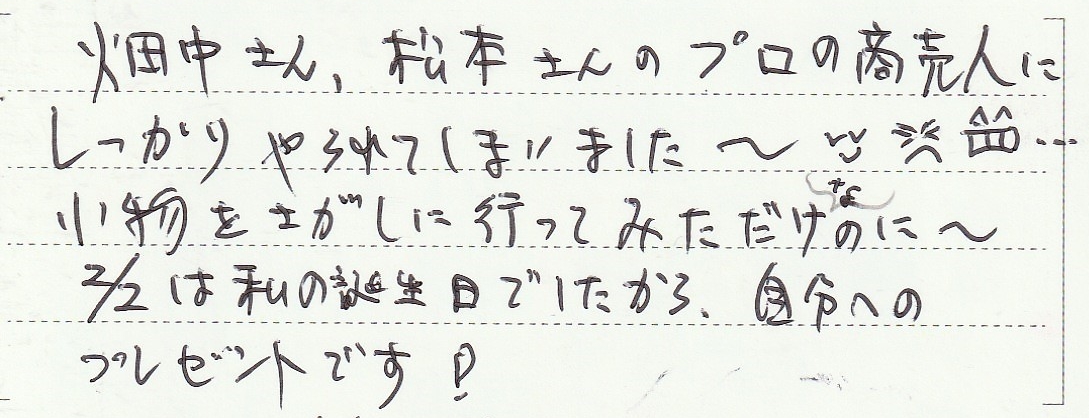 畑中さん、松本さんのプロの商売人に
しっかりやられてしまいました〜
小物をさがしに行ってみただけなのに〜
2/2は私の誕生日でしたから、自分への
プレゼントです!